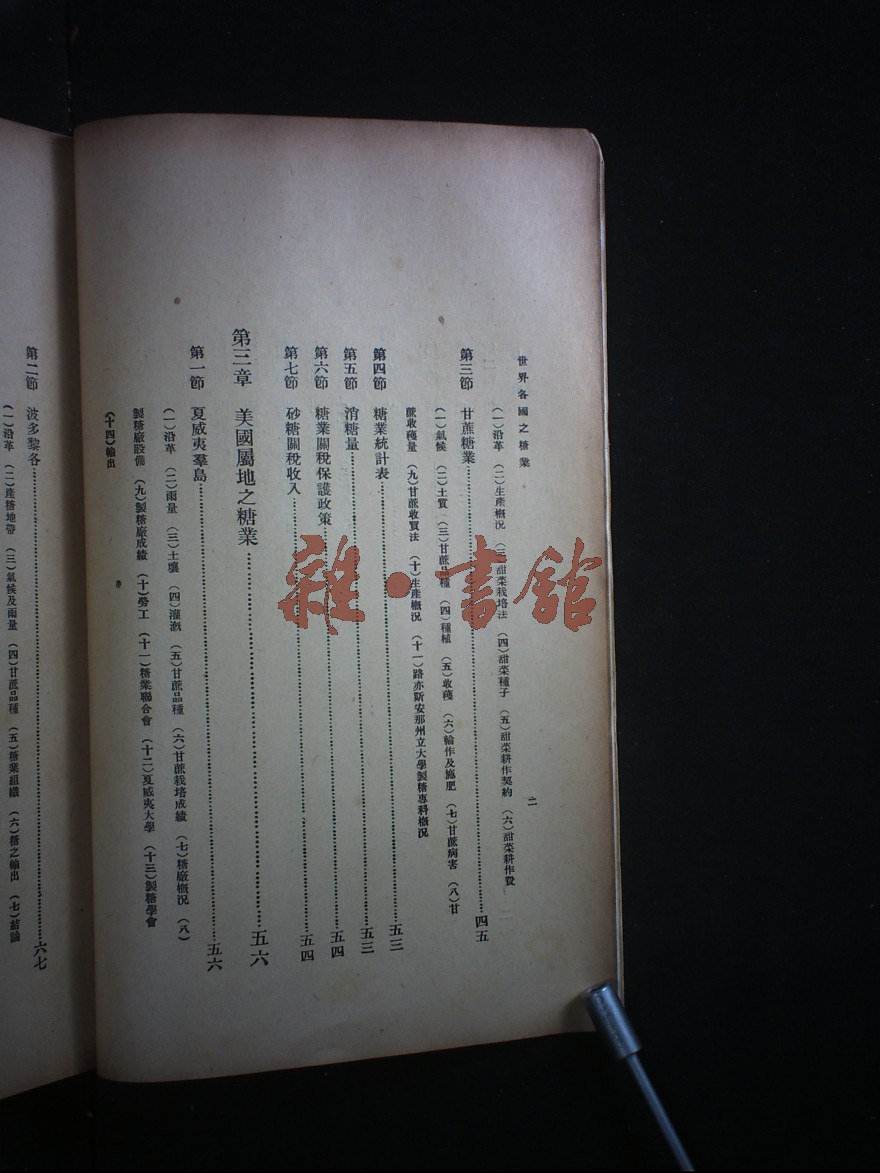 世界各國之糖業
二
(一)沿革 (二)生產概況 (三)甜菜栽培法 (四)甜菜種子 (五)甜菜耕作契約 (六)甜菜耕作費
第三節 甘蔗糖業……四五
(一)氣候 (二)土質 (三)甘蔗品種 (四)種植 (五)收穫 (六)輪作及施肥 (七)甘蔗病害 (八)甘
蔗收穫量 (九)甘蔗收買法 (十)生產概況 (十一)路亦斯安那州立大學製糖專科概況
第四節 糖業統計表……五三
第五節 消糖量……五三
第六節 糖業關稅保護政策……五四
第七節 砂糖關稅收入……五四
第三章 美國屬地之糖業……五六
第一節 夏威夷羣島……五六
(一)沿革 (二)雨量 (三)土壤 (四)灌漑 (五)甘蔗品種 (六)甘蔗栽培成績 (七)糖廠概況 (八)
製糖廠設備 (九)製糖廠成績 (十)勞工 (十一)糖業聯合會 (十二)夏威夷大學 (十三)製糖學會
(十四)輸出
第二節 波多黎各……六七
(一)沿革 (二)產糖地帶 (三)氣候及雨量 (四)甘蔗品種 (五)糖業組織 (六)糖之輸出 (七)結論
雜·書館